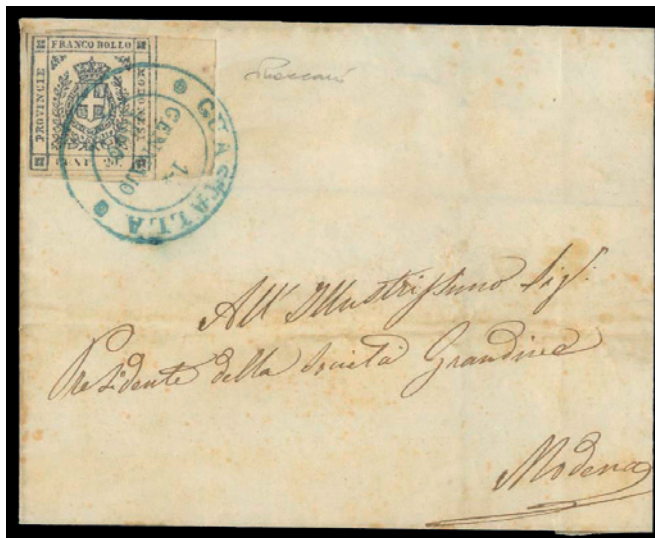 FRANCO BOLLO
PROVINCIE
MODONESI
CENT. 20.
GUASTALLA
GENNAJO
All' Illustrissimo Sig.
Presidente della Società Grandine
Modena